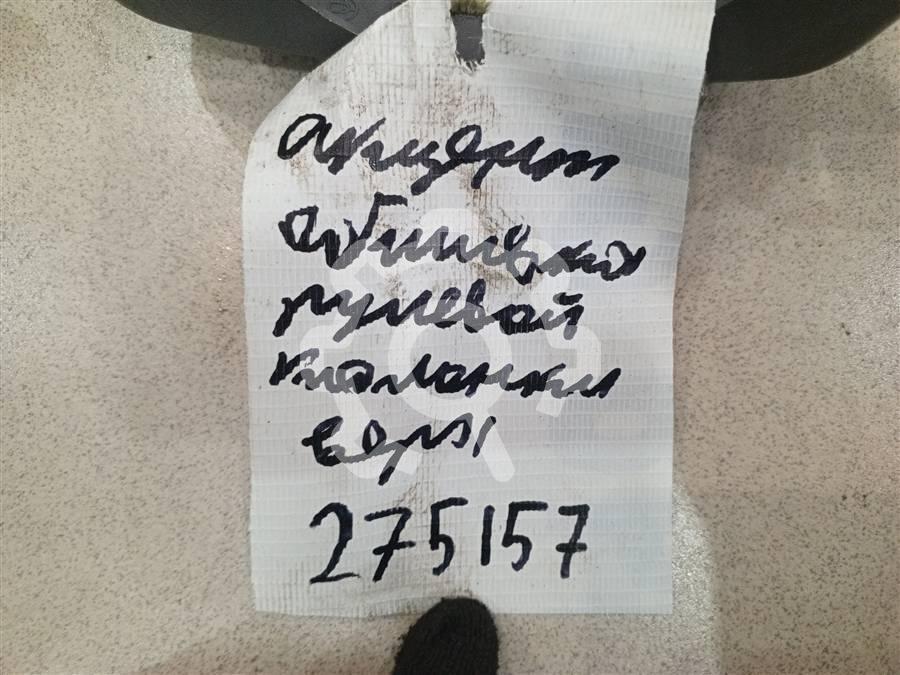 акцент
обшивка
рулевой
колонки
верх
275157